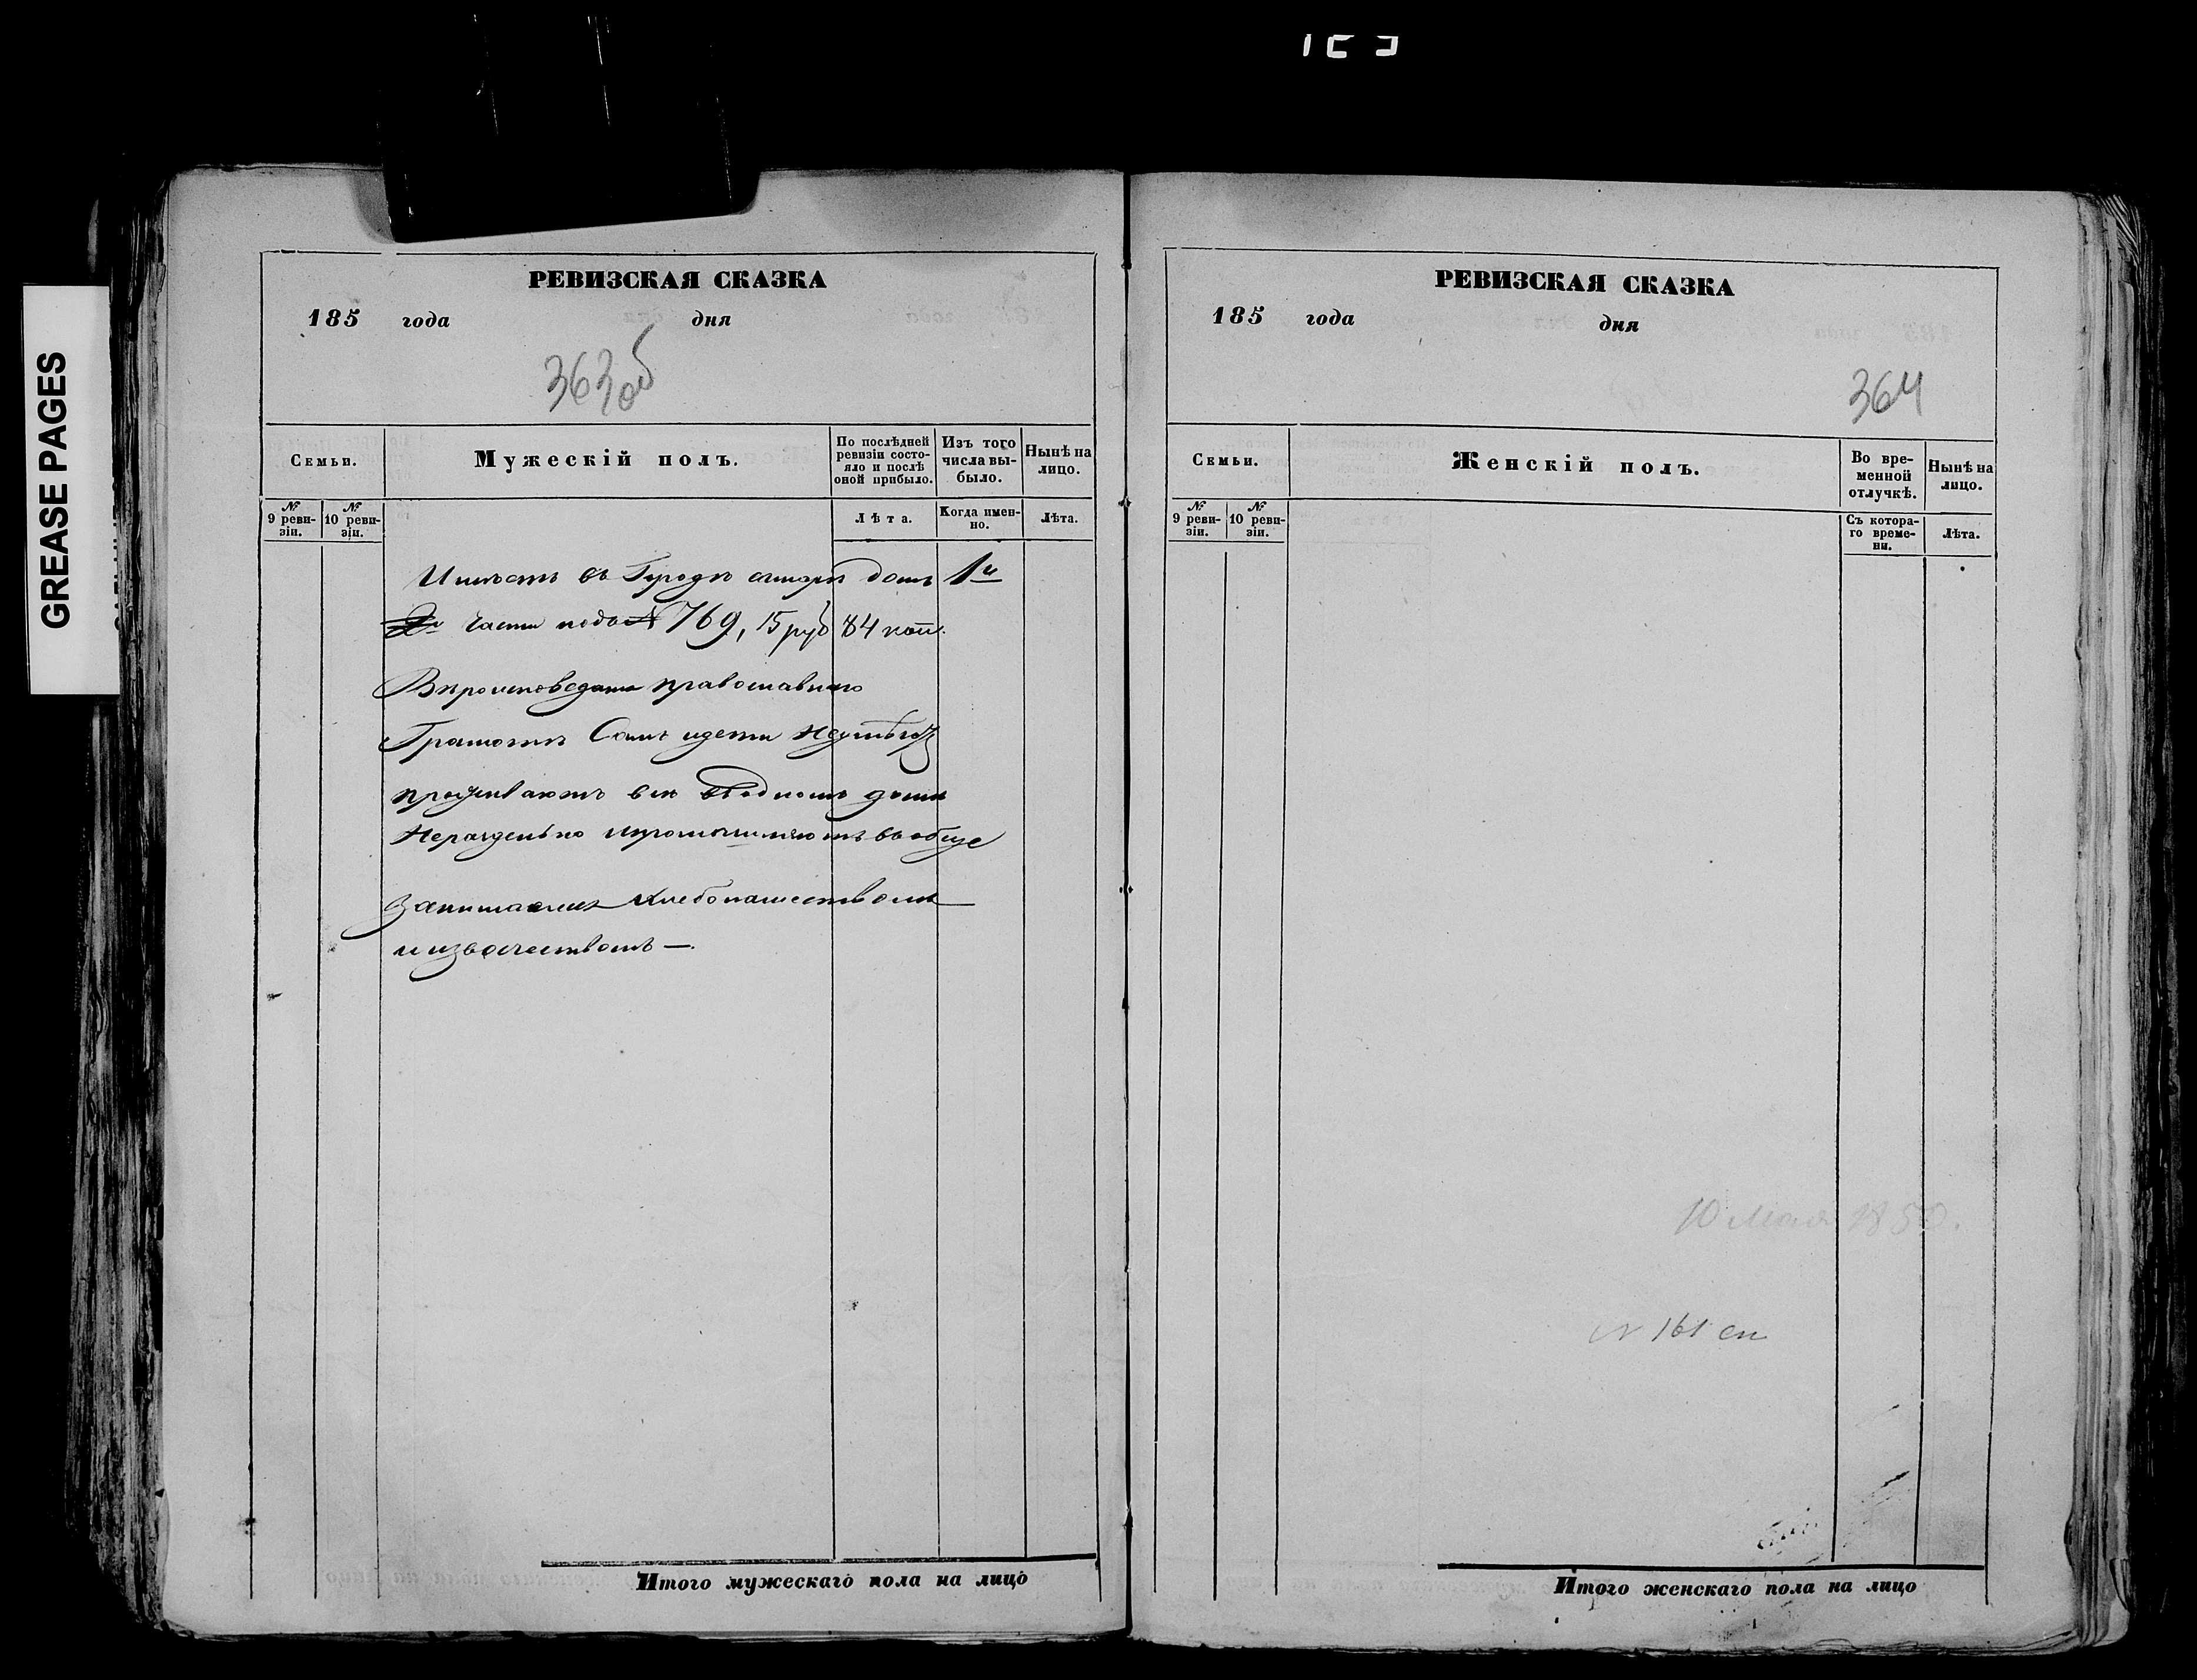 GREASE PAGES
РЕВИЗСКАЯ СКАЗКА
185 года дня
363 об
Семьи.
Мужескій полъ.
По послѣдней ревизіи состояло и послѣ оной прибыло.
Изъ того числа выбыло.
Нынѣ на лицо.
№ 9 ревизіи.
№ 10 ревизіи.
Лѣта.
Когда именно.
Лѣта.
Имѣетъ въ Городѣ старый домъ 1й
части подъ № 769, 15 руб 84 коп.
Вѣроисповеданія православнаго
Грамотѣ Самъ идети Неумѣютъ
проживаютъ всѣ въ одномъ доми
Нераздельно ипромышляютъ вообще
Занимаются хлебопашествомъ
и извосчествомъ —.
Итого мужескаго пола на лицо
РЕВИЗСКАЯ СКАЗКА
185 года дня
364
Семьи.
Женскій полъ.
Во временной отлучкѣ.
Нынѣ на лицо.
№ 9 ревизіи.
№ 10 ревизіи.
Съ котораго времени.
Лѣта.
10 Мая 1850.
№ 161 сп
Итого женскаго пола на лицо